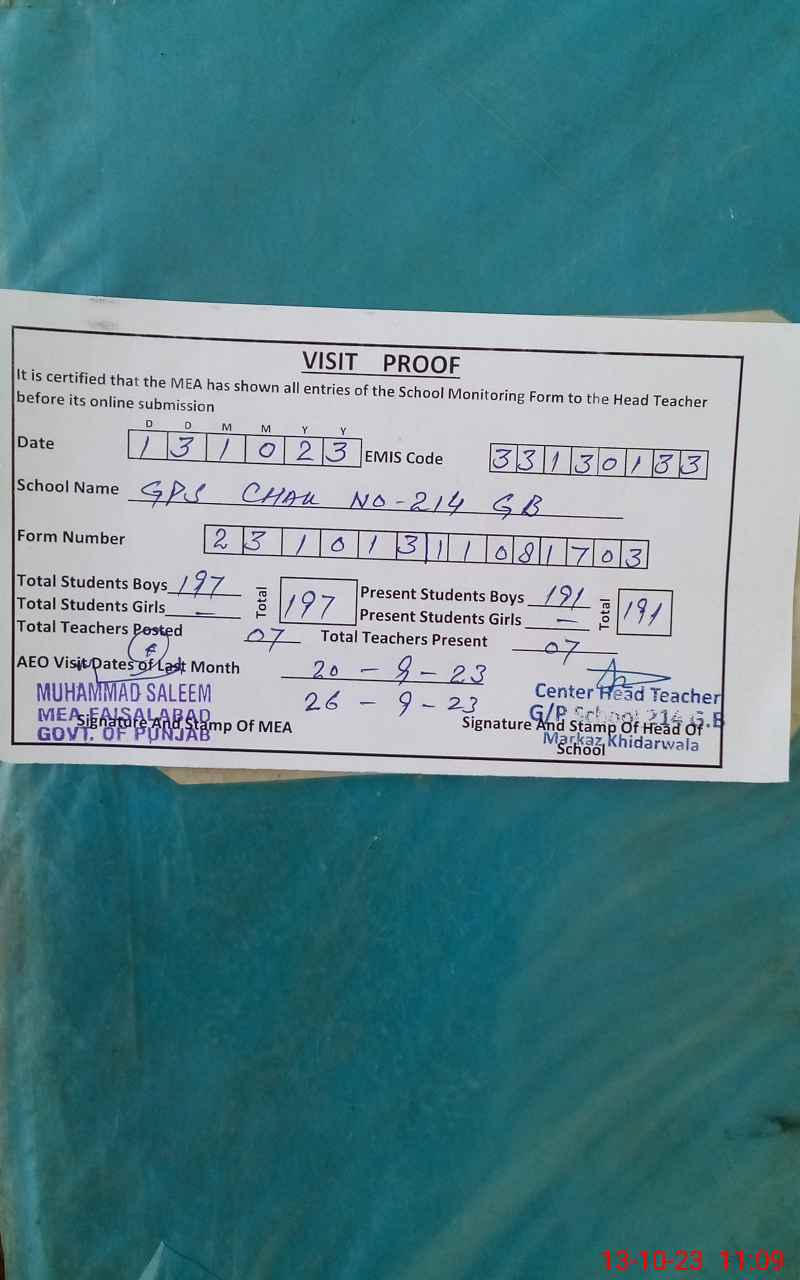 VISIT PROOF
It is certified that the MEA has shown all entries of the School Monitoring Form to the Head Teacher
before its online submission
D D M M Y Y
Date 1 3 1 0 2 3 EMIS Code 3 3 1 3 0 1 3 3
School Name GPS CHAK NO-214 GB
Form Number 2 3 1 0 1 3 1 1 0 8 1 7 0 3
Total Students Boys 197 Total 197 Present Students Boys 191 Total 191
Total Students Girls — Present Students Girls —
Total Teachers Posted 07 Total Teachers Present 07
AEO Visit Dates of Last Month 20 - 9 - 23
26 - 9 - 23
MUHAMMAD SALEEM
MEA FAISALABAD
GOVT. OF PUNJAB
Signature And Stamp Of MEA
Center Head Teacher
G/P School 214 G.B
Markaz Khidarwala
Signature And Stamp Of Head Of
School
13-10-23 11:09